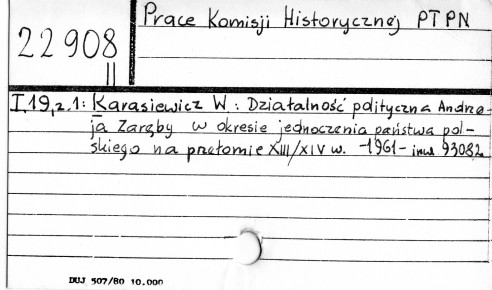 Prace Komisji Historycznej PTPN
22 908
II
T.19, z.1: Karasiewicz W: Działalność polityczna Andrze-
ja Zaręby w okresie jednoczenia państwa pol-
skiego na przełomie XIII/XIV w. -1961- inw 93082
DUJ 507/80 10.000